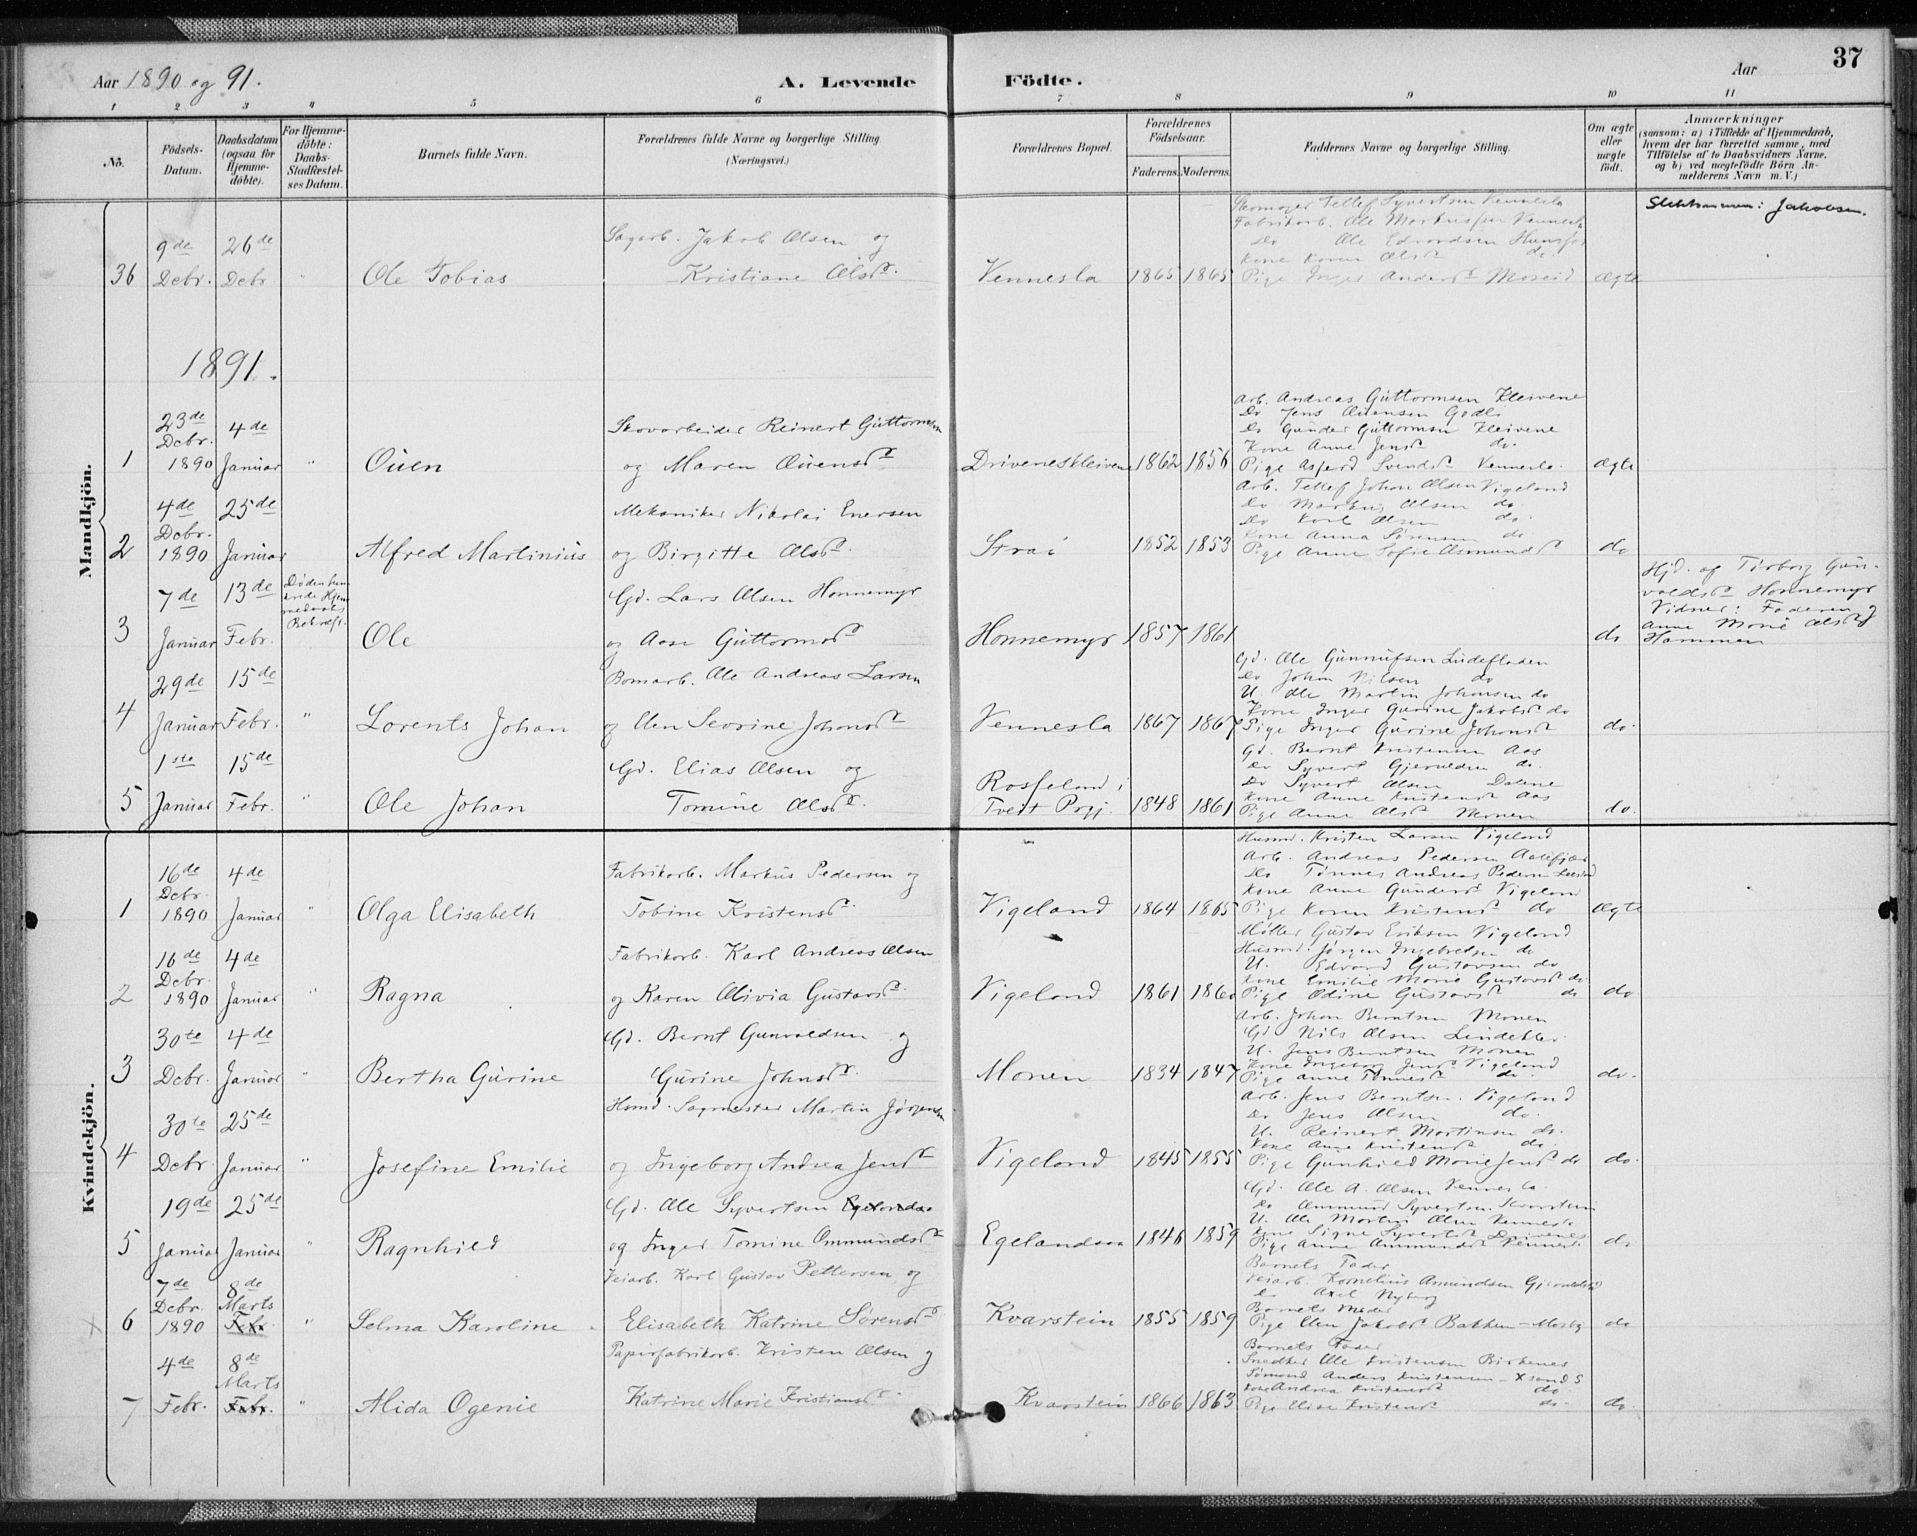 Aar 1890 og 91.
A. Levende
Födte.
Aar
37
1 2 3 4 5 6 7 8 9 10 11
No.
Födsels-Datum.
Daabsdatum (ogsaa for Hjemme-döbte).
For Hjemme-döbte: Daabs-Stadfæstel-ses Datum.
Barnets fulde Navn.
Forældrenes fulde Navne og borgerlige Stilling (Næringsvei.)
Forældrenes Bopæl.
Forældrenes Födselsaar.
Faderens. Moderens.
Faddernes Navne og borgerlige Stilling.
Om ægte eller uægte født.
Anmærkninger
(saasom: a) i Tilfælde af Hjemmedaab, hvem der har forrettet samme, med Tilföielse af to Daabsvidners Navne, og b) ved uægtefödte Börn An-melderens Navn m. V.)
Mandkjön.
36 9de Debr. 26de Debr. " Ole Tobias
Sagarb. Jakob Olsen og
Kristiane Olsdr.
Vennesla 1865 1865
Skomager Tellef Syvertsen Vennesla
Fabrikarb. Ole Markussen Vennesla
Do Ole Edvardsen Hunsfos
Kone Karen Olsdr do.
Pige Inger Andersdr Moseid
Ægte
Slektsnavn: Jakobsen.
1891.
1 23de Debr. 1890 4de Januar " Ouen
Skovarbeider Reinert Guttormsen
og Maren Ouensdr
Driveneskleivene 1862 1856
Arb. Andreas Guttormsen Kleivene
Do Jens Ouensen
Do Gunder Guttormsen Kleivene
Kone Anne Jensdr do.
Pige Asperd Svendsdr Vennesla.
Ægte
2 4de Debr. 1890 25de Januar Alfred Martinius
Mekaniker Nikolai Enersen
og Birgitte Olsdr.
Strai 1852 1853
Arb. Tellef Johan Olsen Vigeland
Do Markus Olsen do.
Do Karl Olsen do.
Kone Anna Sørensen do
Pige Anne Sofie Asmundsdr
do
3 7de Januar 13de Febr. Ole
Gd. Lars Olsen Honnemyr
og Aase Guttormsdr
Honnemyr 1857 1861
do
Hjd. af Torborg Gun-
voldsdr Honnemyr
Vidner: Faderen og
Anne Marie Olsdr
Hammen
4 29de Januar 15de Febr. " Lorents Johan
Bomarb. Ole Andreas Larsen
og Elen Severine Johnsdr
Vennesla 1867 1867
Gd. Ole Gunnufsen Lindefladen
Do John Nilsen do
U. Ole Martin Johnsen do
Kone Inger Gurine Jakobsdr do
Pige Inger Gurine Johnsdr
do.
5 1ste Januar 15de Febr. " Ole Johan
Gd. Elias Olsen og
Tomine Olsdr.
Rosseland i
Tvedt Prgj. 1848 1861
Gd. Bernt Kristensen Aas
Do Syvert Gjeruldsen do.
Do Syvert Olsen Dalene
Kone Anne Kristensdr Aas
Pige Anne Olsdr Monen
do.
Kvindekjön.
1 16de Debr. 1890 4de Januar " Olga Elisabeth
Fabrikarb. Markus Pedersen og
Tobine Kristensdr.
Vigeland 1864 1865
Husmd. Kristen Larsen Vigeland
Arb. Andreas Pedersen
Do Tønnes Andreas Pedersen
Kone Anne Gundersdr Vigeland
Pige Karen Kristensdr do
Ægte
2 16de Debr. 1890 4de Januar " Ragna
Fabrikarb. Karl Andreas Olsen
og Karen Olivia Gustavsdr.
Vigeland 1861 1860
Møller Gustav Eriksen Vigeland
Husmd. Jørgen Ingebretsen do
U. Edvard Gustavsen do
Kone Emilie Marie Gustavsdr do.
Pige Odine Gustavsdr do
do.
3 30te Debr. 4de Januar " Bertha Gurine
Gd. Bernt Gunvaldsen og
Gurine Johnsdr.
Monen 1834 1847
Arb. Johan Berntsen Monen
Gd Nils Olsen
U. Jens Berntsen Monen
Kone Ingeborg Jensdr Vigeland
Pige Anne Tønnesdr do.
do.
4 30te Debr. 25de Januar " Josefine Emilie
Husmd. Sagmester Martin Jörgensen
og Ingeborg Andrea Jensdr
Vigeland 1845 1855
Arb. Jens Berntsen. Vigeland
Do Jens Olsen do.
U. Reinert Martinsen do.
Kone Anne Kristensdr do.
Pige Gunhild Marie Jensdr do
do.
5 19de Januar 25de Januar " Ragnhild
Gd. Ole Syvertsen Egelandsaa
og Inger Tomine Ommundsdr
Egelandsaa 1846 1859
Gd. Ole A. Olsen Vennesla.
Do Ommund Syvertsen Kvarstein
U. Ole Martin Olsen Vennesla
Kone Signe Syvertsdr Drivenes
Pige Anne Ommundsdr Vennesla
do
6 7de Debr. 1890 8de Marts Febr. " Selma Karoline
Veiarb. Karl Gustav Pettersen og
Elisabeth Katrine Sørensdr
Kvarstein 1855 1859
Barnets Fader
Veiarb. Kornelius Amundsen
Do Axel Nyberg
Barnets Moder
Pige Elen Jakobsdr Bakken - Mosby
do
7 4de Febr. 8de Marts Febr. " Alida Ogenie
Papirfabrikarb. Kristen Olsen og
Katrine Marie Kristiansdr
Kvarstein 1866 1863
Barnets Fader
Snedker Ole Kristensen Birkenes
Sømand Anders Kristensen - Xsand S
Kone Andrea Kristensdr do.
Pige Elise Kristensdr do.
do.